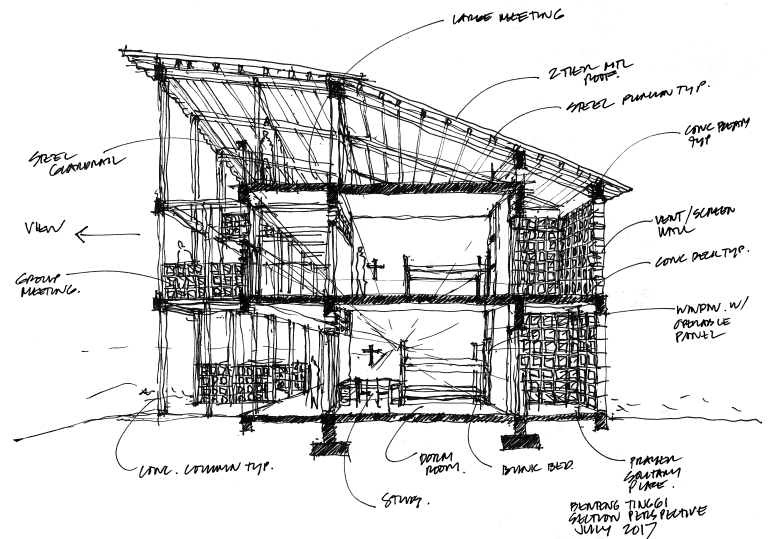 LARGE MEETING
2 TIER MTL
ROOF.
STEEL PURLIN TYP.
CONC BEAM
TYP
STEEL
GUARDRAIL
VIEW
VENT/SCREEN
WALL
CONC DECK TYP.
GROUP
MEETING.
WINDOW W/
OPERABLE
PANEL
CONC. COLUMN TYP.
DORM
ROOM.
BUNK BED.
PRAYER
SOLITARY
PLACE.
STUDY.
BENTENG TINGGI
SECTION PERSPECTIVE
JULY 2017